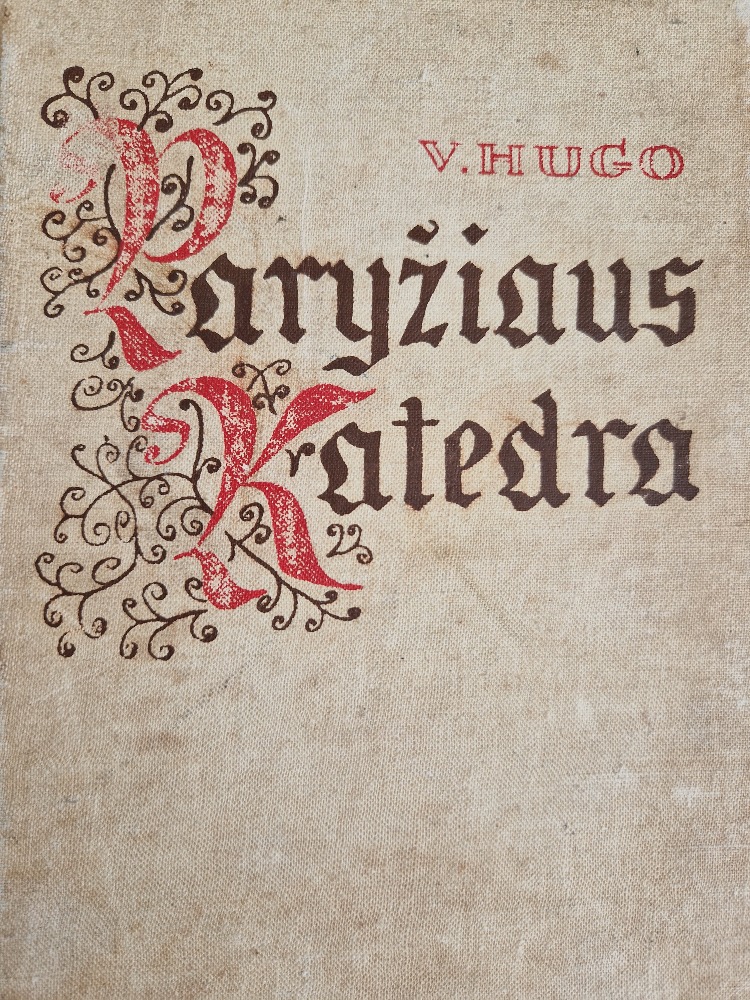 V. HUGO
Paryžiaus
Katedra